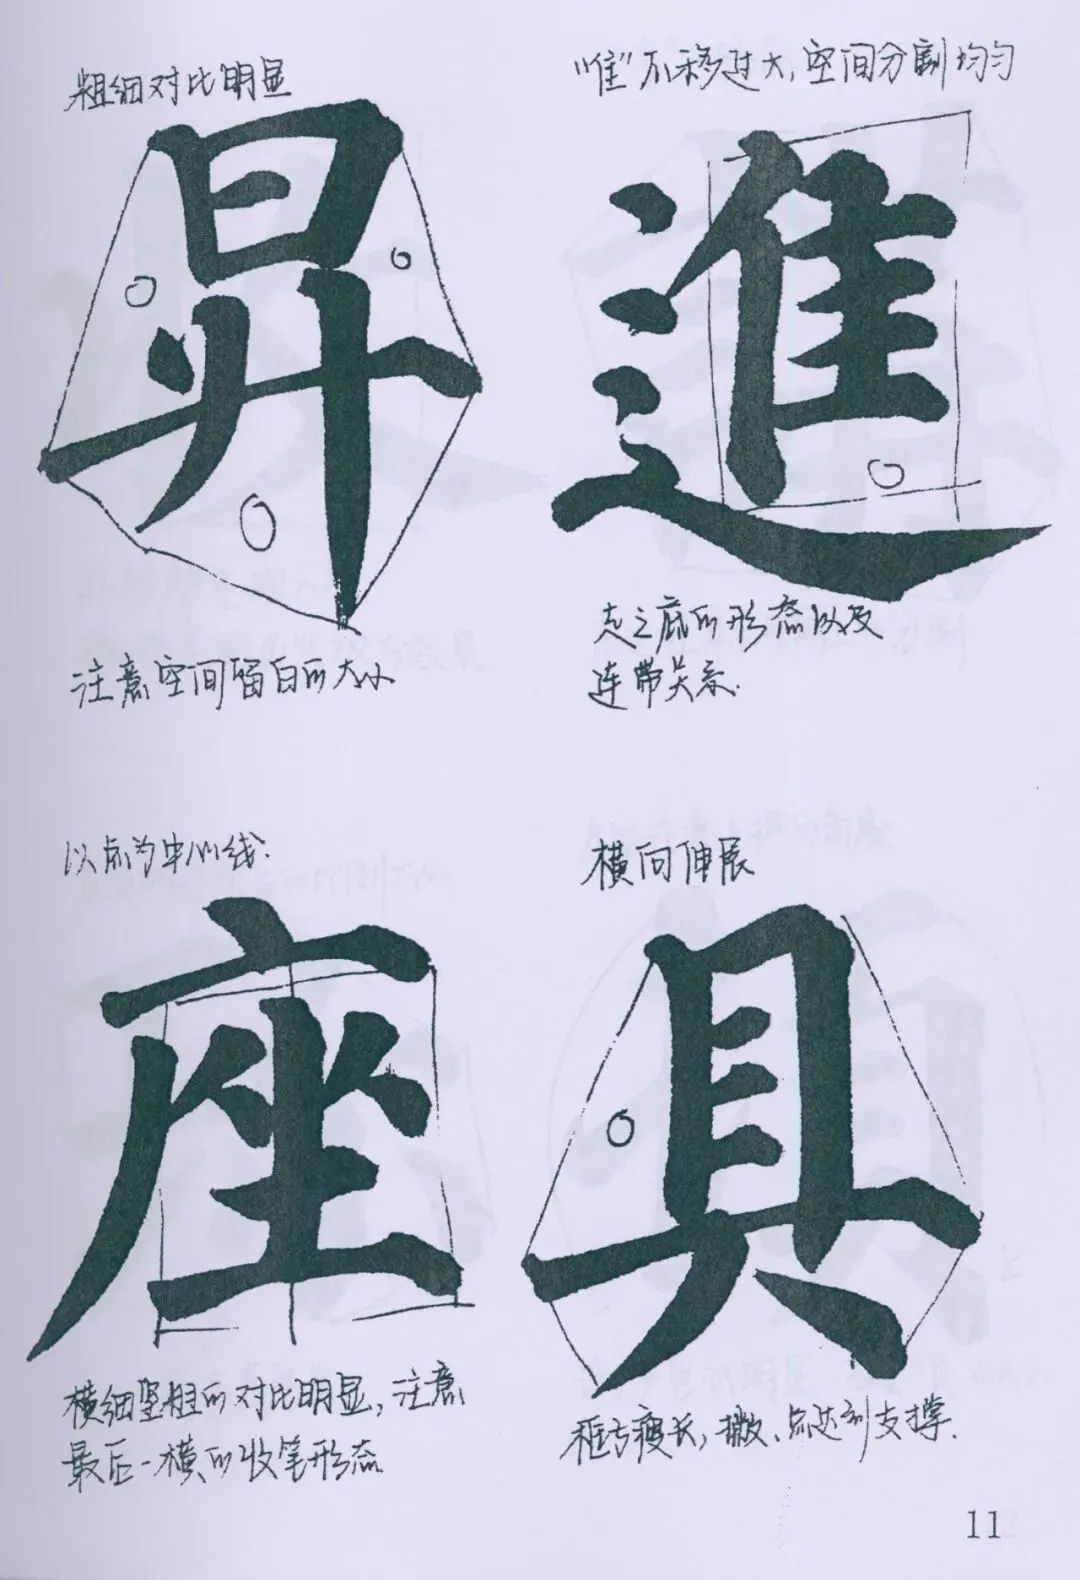 粗细对比明显
昇
注意空间留白的大小
"隹"不移过大,空间分割均匀
進
走之底的形态以及
连带关系.
以点为中心线.
座
横细竖粗的对比明显,注意
最后一横的收笔形态
横向伸展
具
框高瘦长,撇、点达到支撑.
11